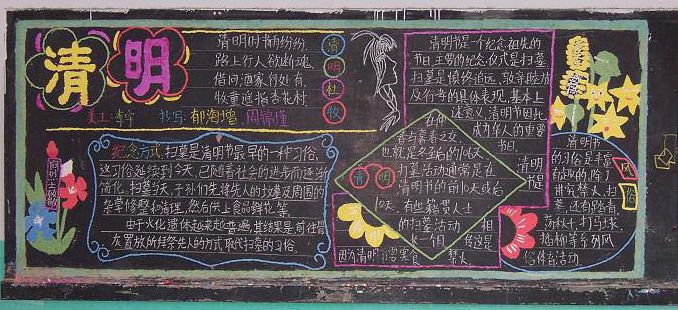 清明
清明时节雨纷纷，
路上行人欲断魂。
借问酒家何处有，
牧童遥指杏花村。
清
明
杜
牧
美工：李宁 抄写：郁海增、周锦瑾
纪念方式：扫墓是清明节最早的一种习俗，
这习俗延续到今天，已随着社会的进步而逐渐
简化，扫墓当天，子孙们先将先人的坟墓及周围的
杂草修整和清理，然后供上食品鲜花等。
由于火化遗体越来越普遍，其结果是前往骨
灰置放的拜祭先人的方式取代扫墓的习俗。
清明节是一个纪念祖先的
节日，主要的纪念仪式是扫墓，
扫墓是慎终追远、敦亲睦族
及行孝的具体表现，基本上
述意义，清明节因此
成为华人的重要
节日。
清明
节是
在仲
春与暮春之交，
也就是冬至后的106天。
扫墓活动通常是在
清明节的前10天或后
10天。有些籍贯人士
的扫墓活动
长一个月
清
明
相
传这是
因为清明节要寒食
禁火
清明节
的习俗是丰富
有趣的，除了
讲究禁火、扫
墓，还有踏青、
荡秋千、打马球、
插柳等系列风
俗体育活动。
风
俗